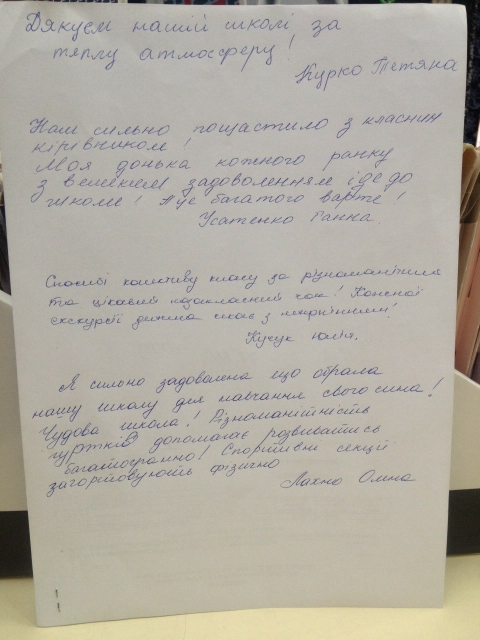 Дякуєм нашій школі за
теплу атмосферу!
Курко Тетяна
Нам сильно пощастило з класним
кірівником!
Моя донька кожного ранку
з великим задоволенням іде до
школи! А це багато варте!
Усатенко Ганна.
Спасибі колективу класу за різноманітний
та цікавий позакласний час! Кожної
екскурсії дитина чекає з нетерпінням!
Кучук Юлія.
Я сильно задоволена що обрала
нашу школу для навчання свого сина!
Чудова школа! Різноманітність
гуртків допомагає розвиватись
багатогранно! Спортивні секції
загартовують фізично
Лахно Олена